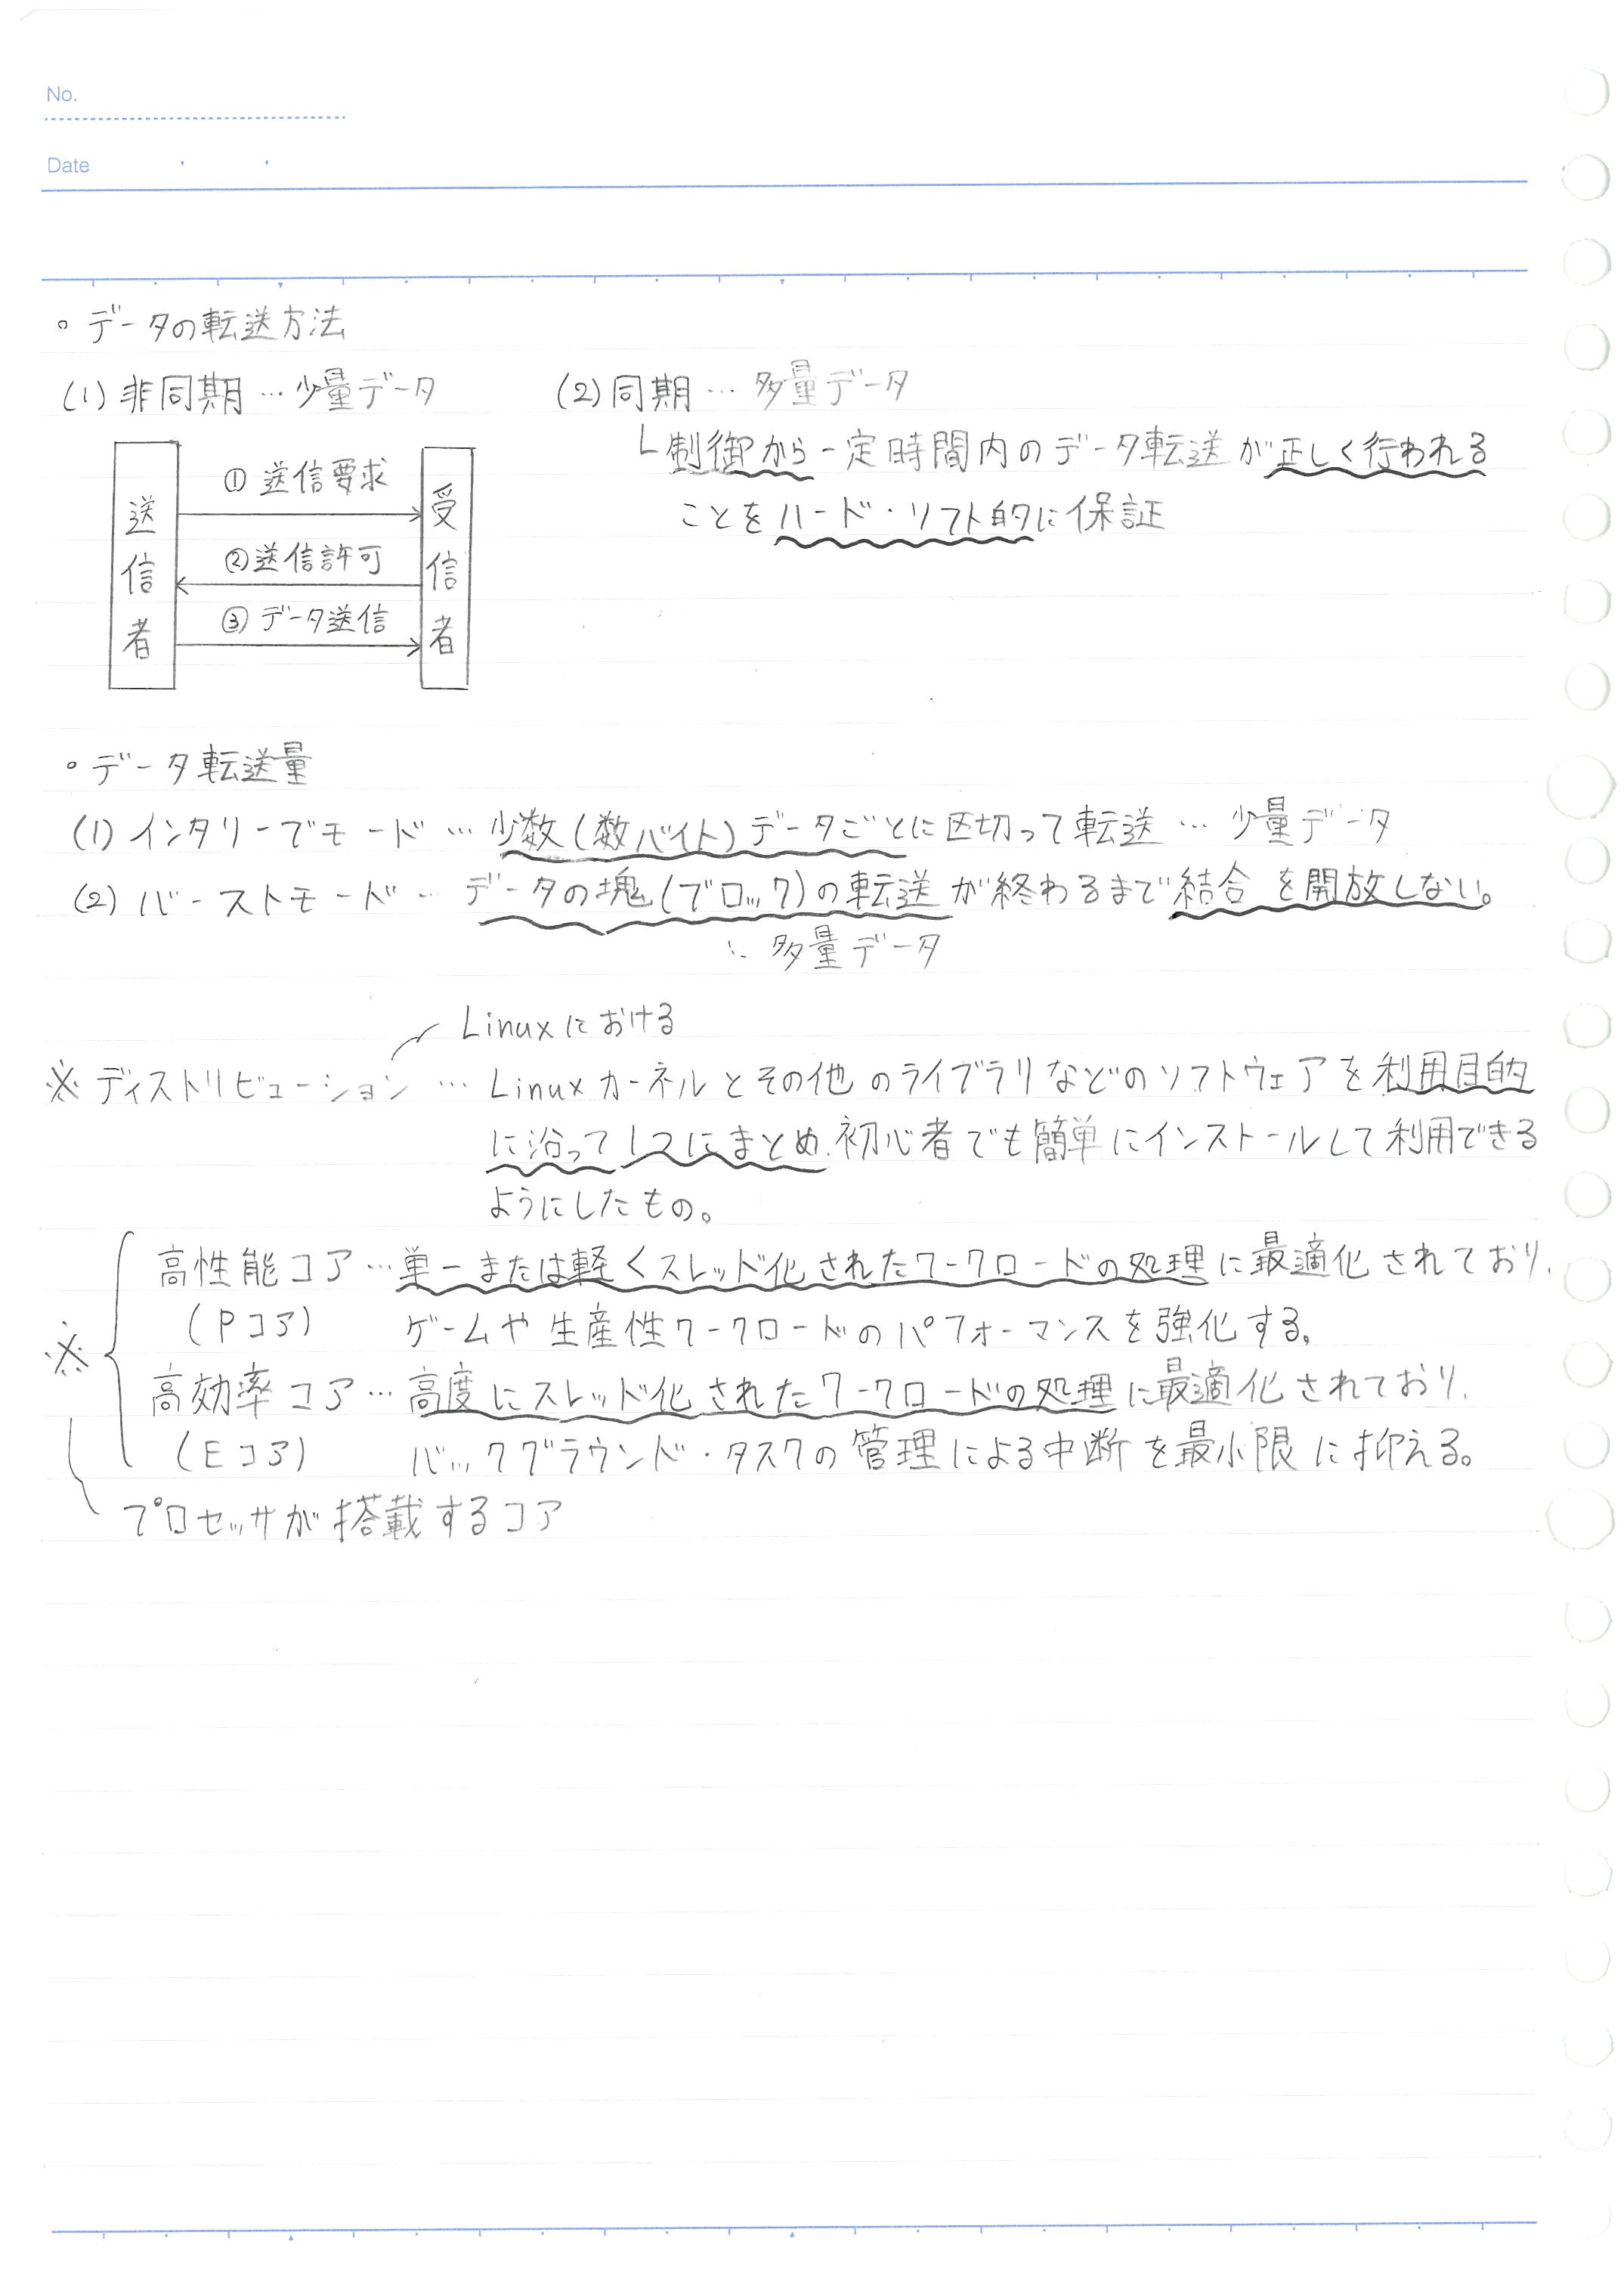 No.
Date
。データの転送方法
(1) 非同期…少量データ
送信者
① 送信要求
②送信許可
③ データ送信
受信者
(2) 同期…多量データ
制御から一定時間内のデータ転送が正しく行われる
ことをハード・ソフト的に保証
。データ転送量
(1) インタリーブモード…少数(数バイト)データごとに区切って転送…少量データ
(2) バーストモード…データの塊(ブロック)の転送が終わるまで結合を開放しない。
∵ 多量データ
Linuxにおける
※ ディストリビューション…Linuxカーネルとその他のライブラリなどのソフトウェアを利用目的
に沿って1つにまとめ、初心者でも簡単にインストールして利用できる
ようにしたもの。
※
高性能コア…単一または軽くスレッド化されたワークロードの処理に最適化されており、
(Pコア) ゲームや生産性ワークロードのパフォーマンスを強化する。
高効率コア…高度にスレッド化されたワークロードの処理に最適化されており、
(Eコア) バックグラウンド・タスクの管理による中断を最小限に抑える。
プロセッサが搭載するコア